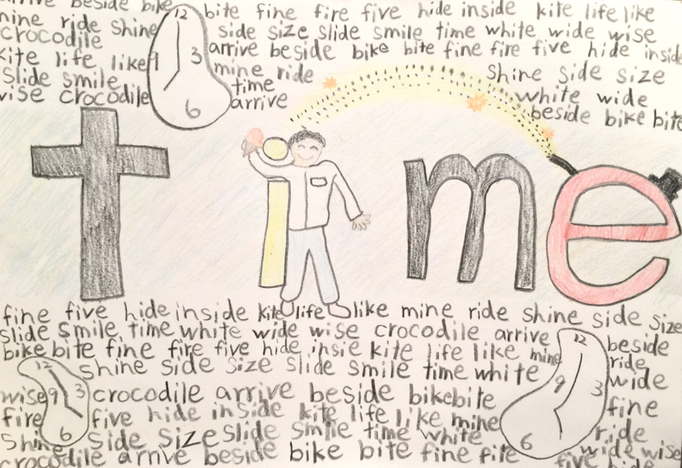 arrive beside bike bite fine fire five hide inside kite life like
nine ride shine side size slide smile time white wide wise
crocodile arrive beside bike bite fine fire five hide inside
kite life like mine ride shine side size
slide smile time white wide
wise crocodile arrive beside bike bite
12
9 3
6
time
fine five hide inside kite life like mine ride shine side size
slide smile time white wide wise crocodile arrive beside
bike bite fine fire five hide insie kite life like mine ride
12 shine side size slide smile time white 12 wide
wise 9 3 crocodile arrive beside bike bite 9 3 fine
fire five hide inside kite life like mine ride
shine 6 side size slide smile time white 6 wide wise
crocodile arrive beside bike bite fine fire five